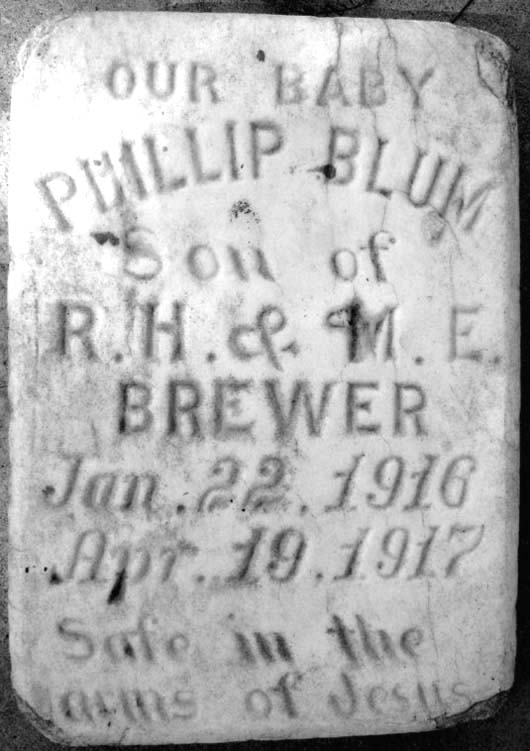 OUR BABY
PHILLIP BLUM
Son of
R. H. & M. E.
BREWER
Jan. 22. 1916
Apr. 19. 1917
Safe in the
arms of Jesus